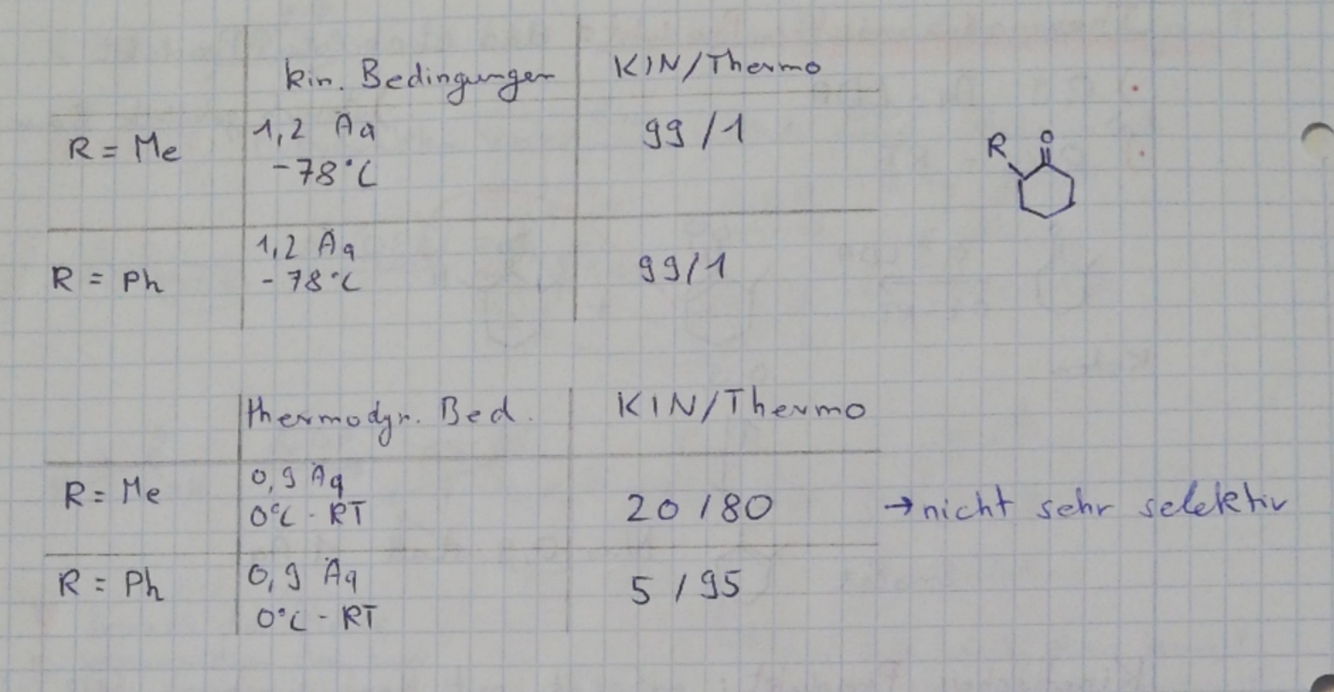 kin. Bedingungen KIN/Thermo
R = Me 1,2 Äq 99/1
-78°C
R O
R = Ph 1,2 Äq 99/1
-78°C
thermodyn. Bed. KIN/Thermo
R = Me 0,9 Äq 20/80 → nicht sehr selektiv
0°C - RT
R = Ph 0,9 Äq 5/95
0°C - RT